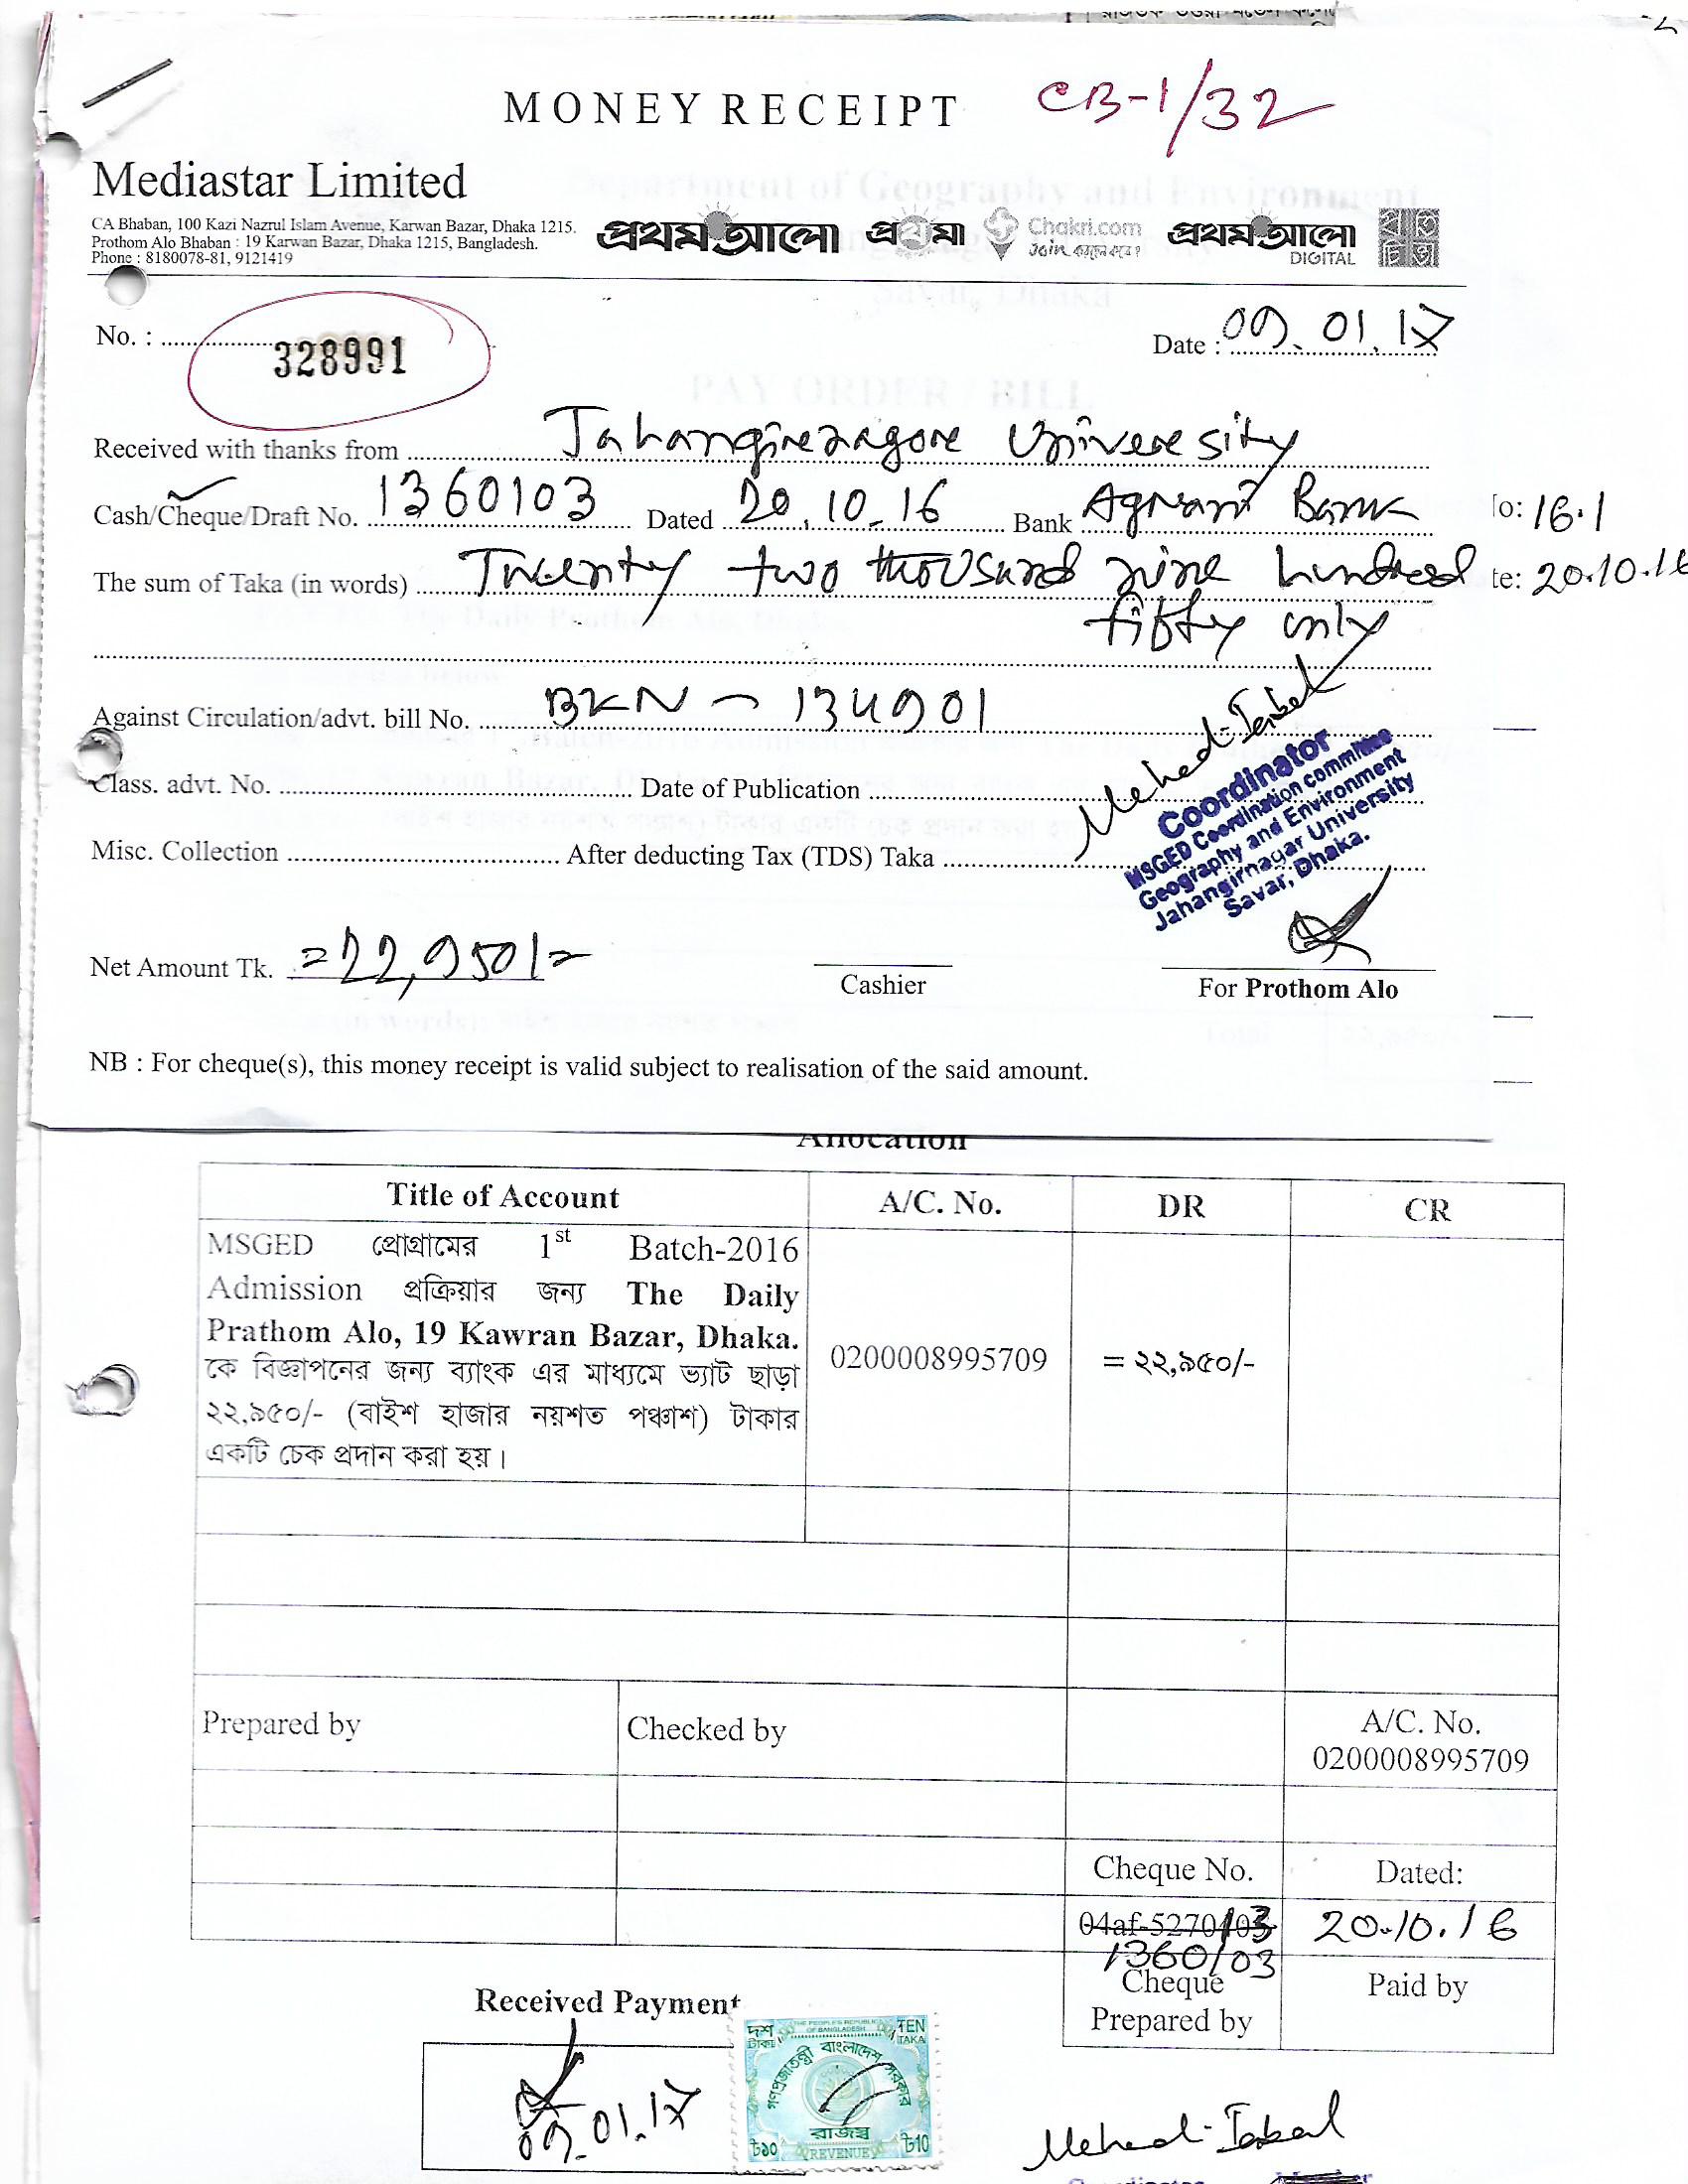 MONEY RECEIPT
CB-1/32
Mediastar Limited
CA Bhaban, 100 Kazi Nazrul Islam Avenue, Karwan Bazar, Dhaka 1215.
Prothom Alo Bhaban : 19 Karwan Bazar, Dhaka 1215, Bangladesh.
Phone : 8180078-81, 9121419
প্রথম আলো প্রথমা Chakri.com প্রথম আলো DIGITAL
No. : 328991
Date : 09.01.17
Received with thanks from Jahangirnagore University
Cash/Cheque/Draft No. 1360103 Dated 20.10.16 Bank Agrani Bank
lo: 16.1
The sum of Taka (in words) Twenty two thousand nine hundred
te: 20.10.16
fifty only
Against Circulation/advt. bill No. BKN - 134901
Class. advt. No. Date of Publication
Misc. Collection After deducting Tax (TDS) Taka
Mehedi Iqbal
Coordinator
MSGED Coordination committee
Geography and Environment
Jahangirnagar University
Savar, Dhaka.
Net Amount Tk. =22,950/=
Cashier
For Prothom Alo
NB : For cheque(s), this money receipt is valid subject to realisation of the said amount.
Allocation
Title of Account A/C. No. DR CR
MSGED প্রোগ্রামের 1st Batch-2016
Admission প্রক্রিয়ার জন্য The Daily
Prathom Alo, 19 Kawran Bazar, Dhaka.
কে বিজ্ঞাপনের জন্য ব্যাংক এর মাধ্যমে ভ্যাট ছাড়া
২২,৯৫০/- (বাইশ হাজার নয়শত পঞ্চাশ) টাকার
একটি চেক প্রদান করা হয়।
0200008995709
= ২২,৯৫০/-
Prepared by Checked by
A/C. No.
0200008995709
Cheque No. Dated:
1360103
20.10.16
Cheque
Prepared by
Paid by
Received Payment
09.01.17
দশ টাকা
THE PEOPLE'S REPUBLIC OF BANGLADESH
TEN TAKA
গণপ্রজাতন্ত্রী বাংলাদেশ সরকার
রাজস্ব
৳১০ REVENUE ৳10
Mehedi Iqbal